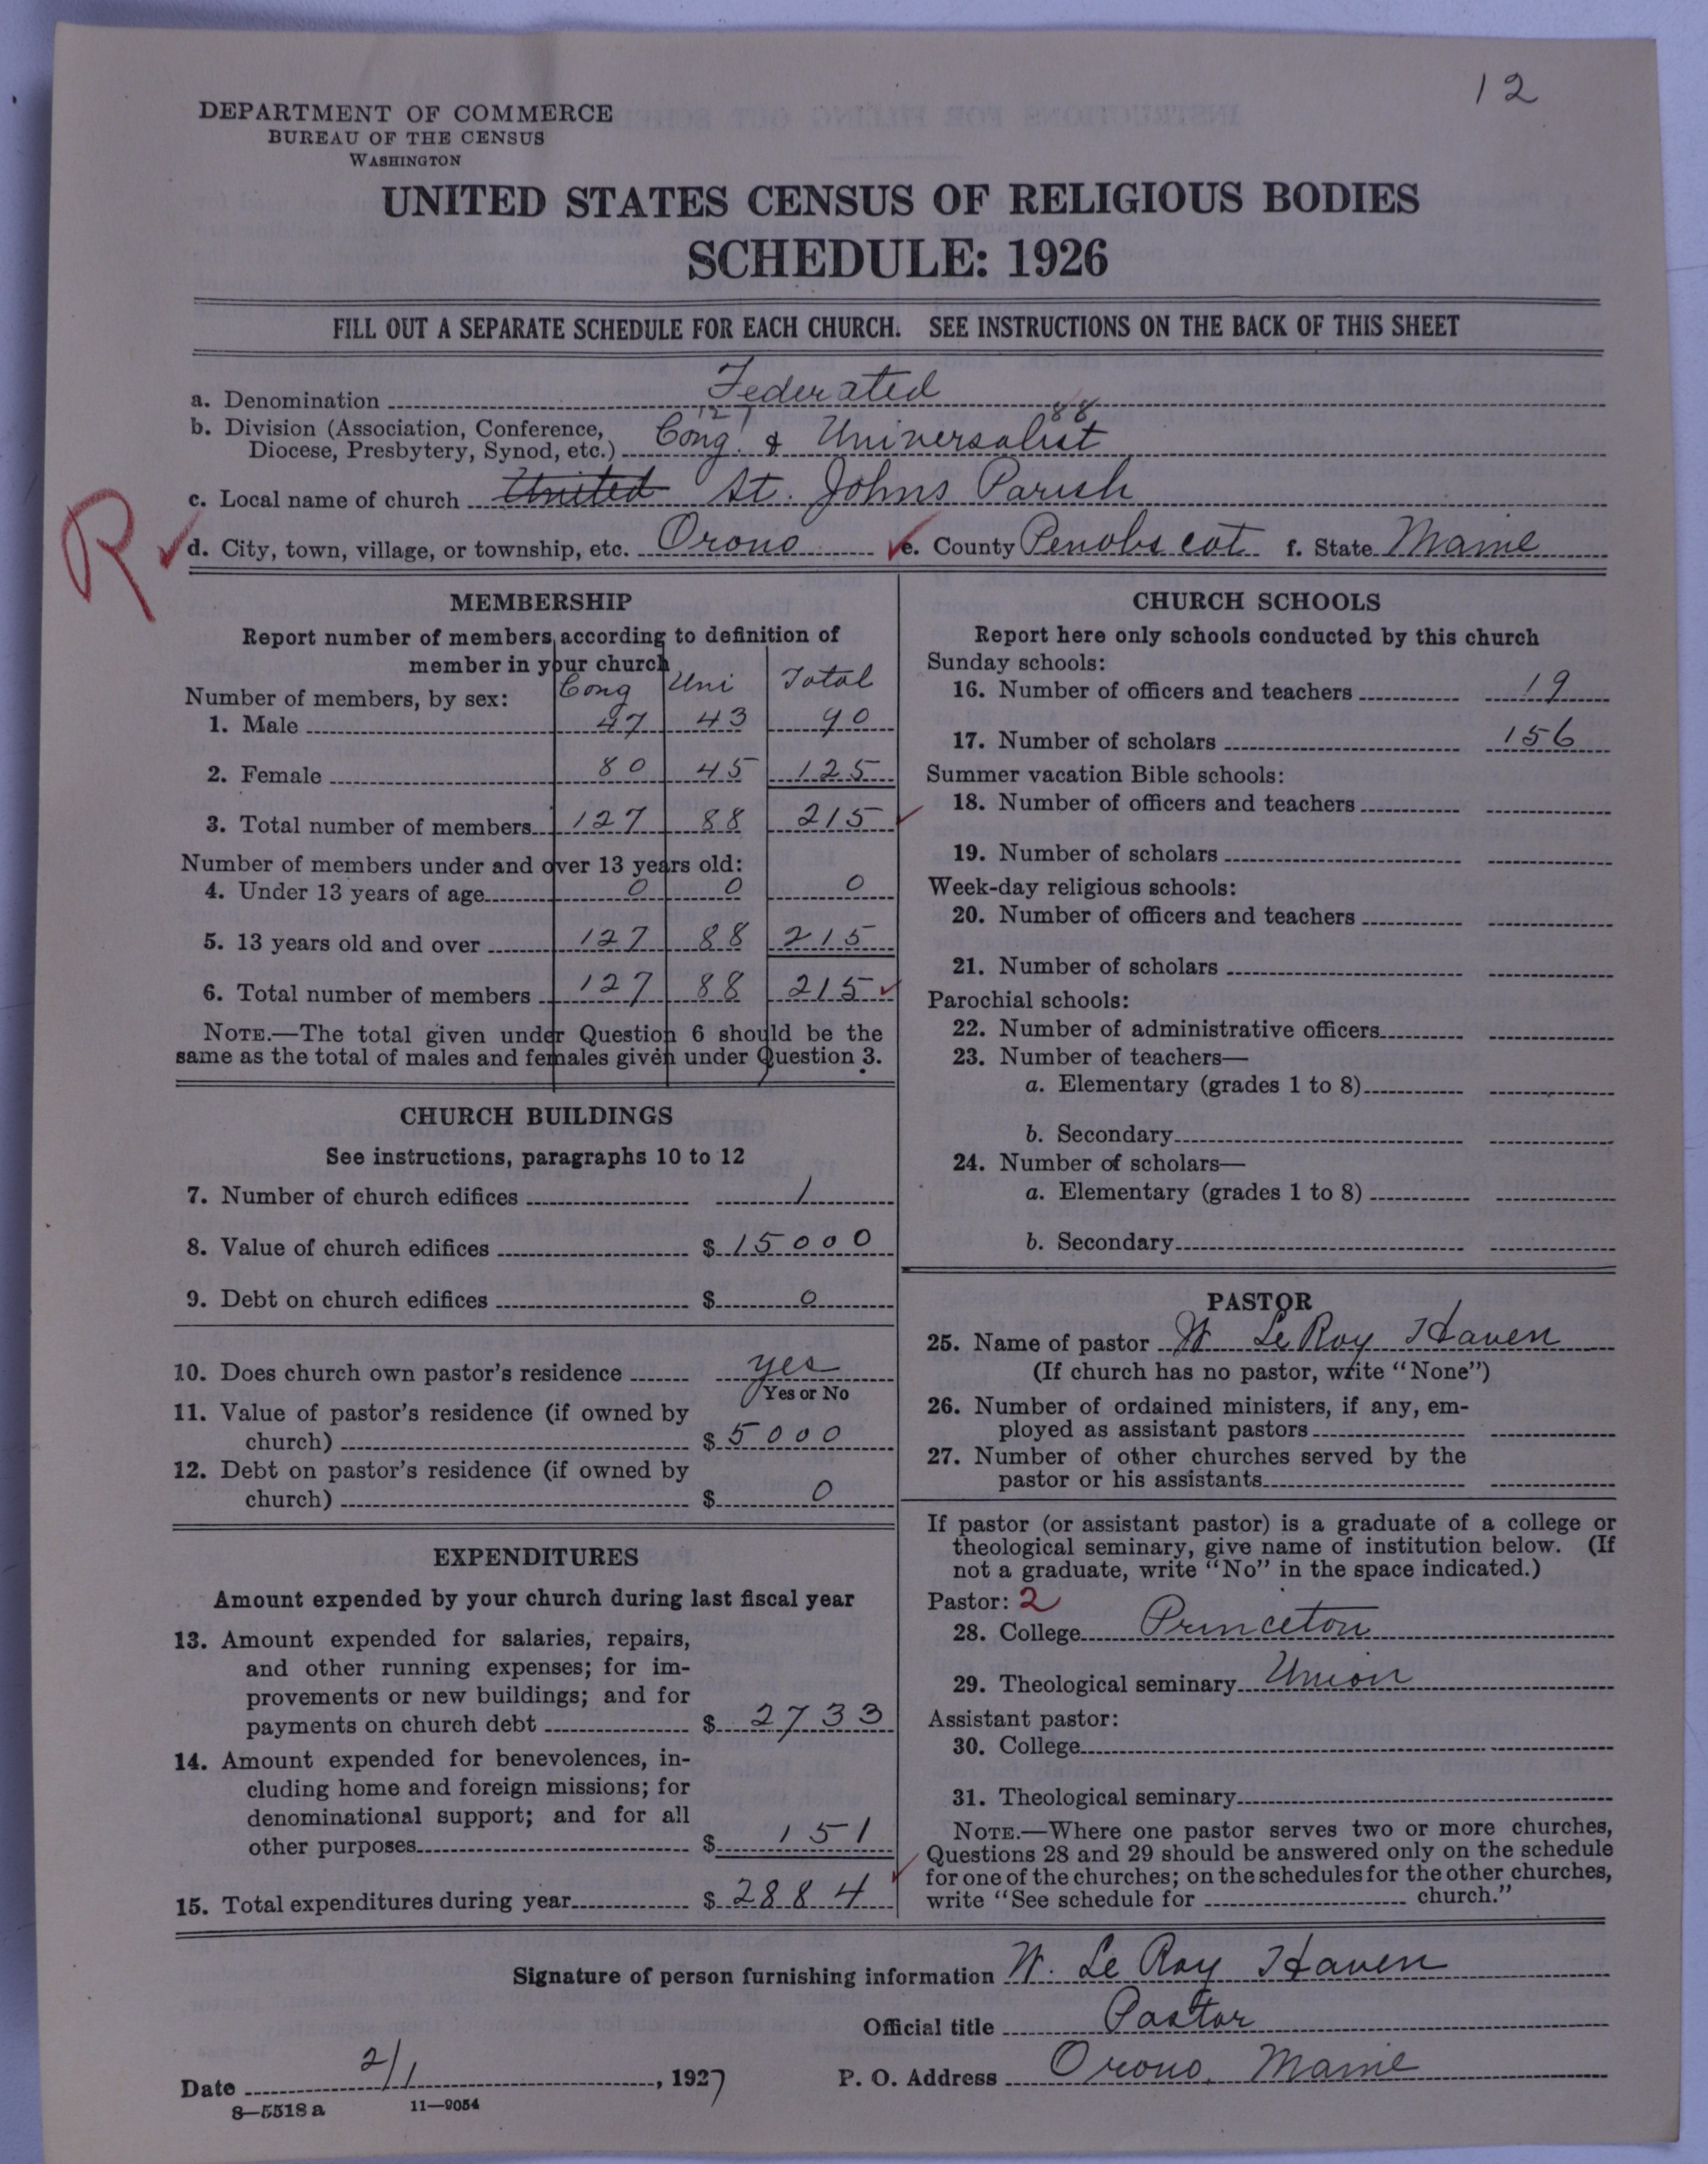 12
DEPARTMENT OF COMMERCE
BUREAU OF THE CENSUS
WASHINGTON
UNITED STATES CENSUS OF RELIGIOUS BODIES
SCHEDULE: 1926
FILL OUT A SEPARATE SCHEDULE FOR EACH CHURCH. SEE INSTRUCTIONS ON THE BACK OF THIS SHEET
a. Denomination Federated
127 88
b. Division (Association, Conference, Diocese, Presbytery, Synod, etc.) Cong. & Universalist
c. Local name of church United St. Johns Parish
R
d. City, town, village, or township, etc. Orono e. County Penobscot f. State Maine
MEMBERSHIP
Report number of members according to definition of
member in your church
Cong Uni Total
Number of members, by sex:
1. Male 47 43 90
2. Female 80 45 125
3. Total number of members 127 88 215
Number of members under and over 13 years old:
4. Under 13 years of age 0 0 0
5. 13 years old and over 127 88 215
6. Total number of members 127 88 215
NOTE.—The total given under Question 6 should be the
same as the total of males and females given under Question 3.
CHURCH BUILDINGS
See instructions, paragraphs 10 to 12
7. Number of church edifices 1
8. Value of church edifices $ 15000
9. Debt on church edifices $ 0
10. Does church own pastor's residence yes
Yes or No
11. Value of pastor's residence (if owned by
church) $ 5000
12. Debt on pastor's residence (if owned by
church) $ 0
EXPENDITURES
Amount expended by your church during last fiscal year
13. Amount expended for salaries, repairs,
and other running expenses; for im-
provements or new buildings; and for
payments on church debt $ 2733
14. Amount expended for benevolences, in-
cluding home and foreign missions; for
denominational support; and for all
other purposes $ 151
15. Total expenditures during year $ 2884
CHURCH SCHOOLS
Report here only schools conducted by this church
Sunday schools:
16. Number of officers and teachers 19
17. Number of scholars 156
Summer vacation Bible schools:
18. Number of officers and teachers
19. Number of scholars
Week-day religious schools:
20. Number of officers and teachers
21. Number of scholars
Parochial schools:
22. Number of administrative officers
23. Number of teachers—
a. Elementary (grades 1 to 8)
b. Secondary
24. Number of scholars—
a. Elementary (grades 1 to 8)
b. Secondary
PASTOR
25. Name of pastor W LeRoy Haven
(If church has no pastor, write "None")
26. Number of ordained ministers, if any, em-
ployed as assistant pastors
27. Number of other churches served by the
pastor or his assistants
If pastor (or assistant pastor) is a graduate of a college or
theological seminary, give name of institution below. (If
not a graduate, write "No" in the space indicated.)
Pastor: 2
28. College Princeton
29. Theological seminary Union
Assistant pastor:
30. College
31. Theological seminary
NOTE.—Where one pastor serves two or more churches,
Questions 28 and 29 should be answered only on the schedule
for one of the churches; on the schedules for the other churches,
write "See schedule for church."
Signature of person furnishing information W. Le Roy Haven
Official title Pastor
Date 2/1, 1927 P. O. Address Orono, Maine
8—5518 a 11—9054